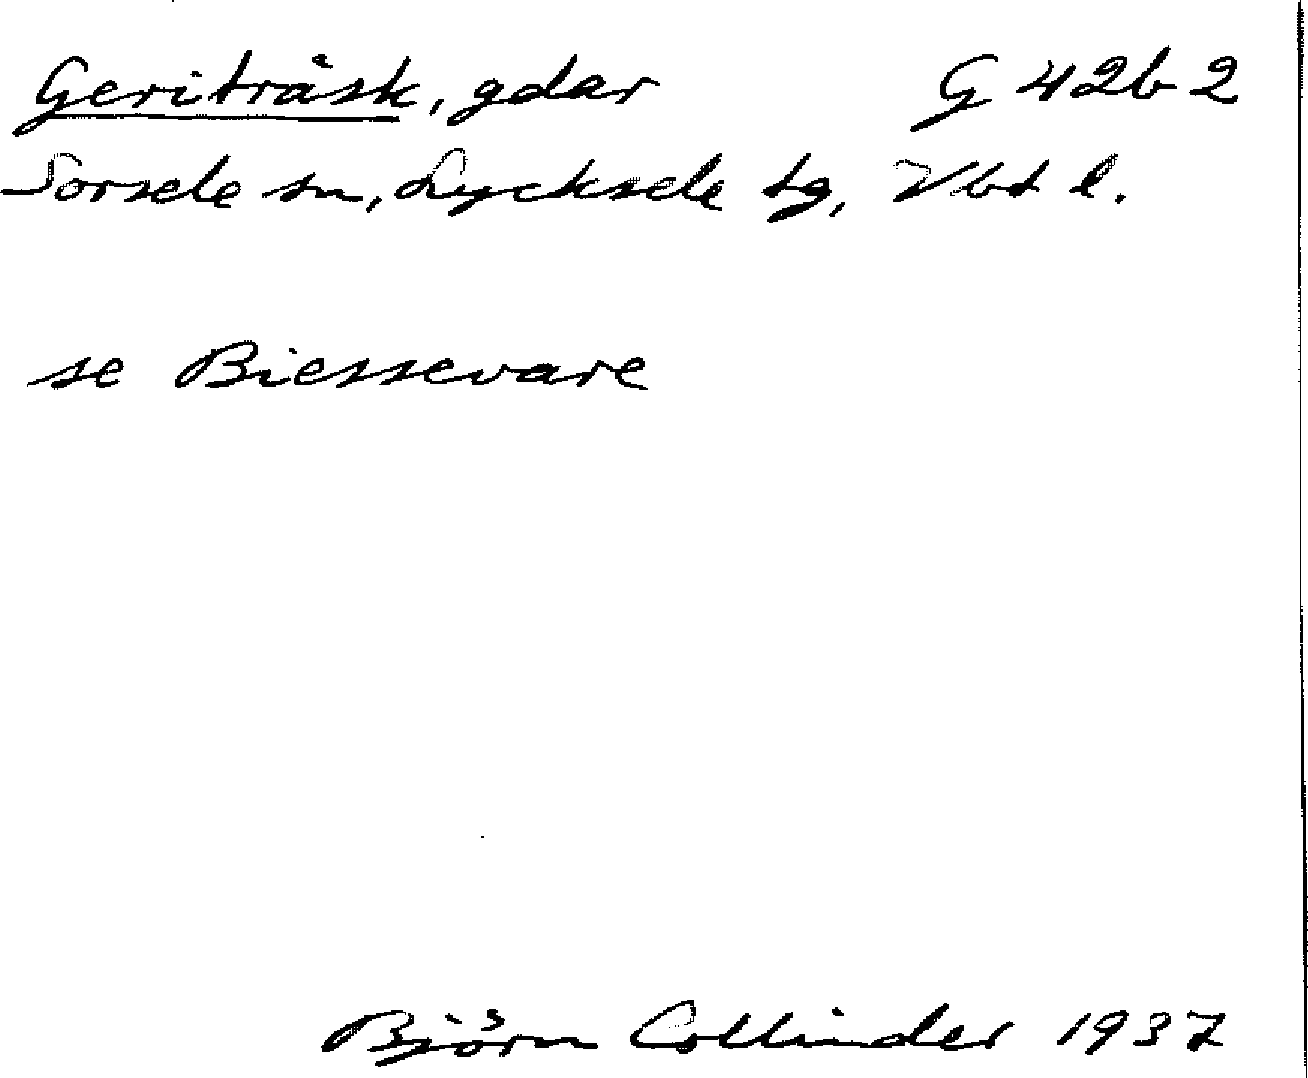 Geriträsk, gdar G 42b 2
Sorsele sn, Lycksele tg, Vbt l.
se Biessevare
Björn Collinder 1937